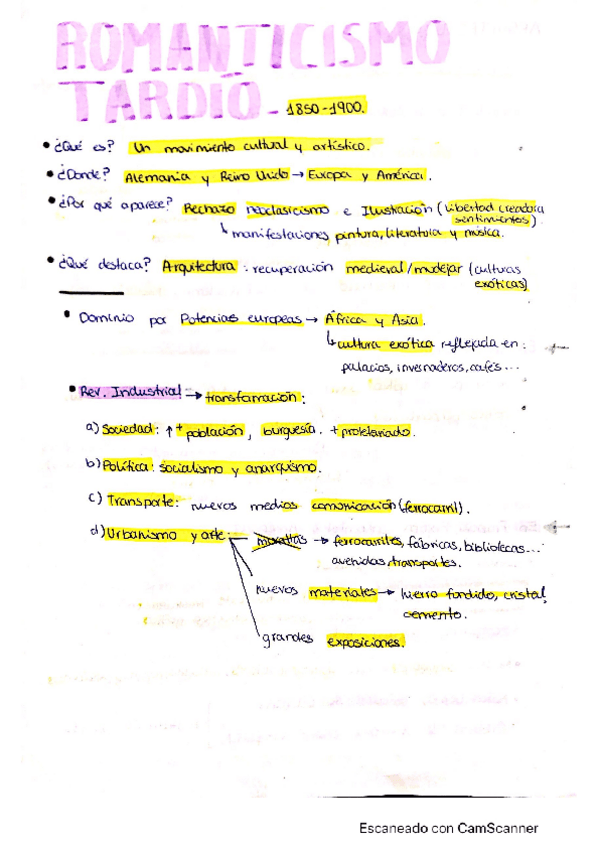 ROMANTICISMO
TARDÍO - 1850-1900.
• ¿Qué es? Un movimiento cultural y artístico.
• ¿Donde? Alemania y Reino Unido → Europa y América.
• ¿Por qué aparece? Rechazo neoclasicismo e Ilustración (libertad creadora
sentimientos)
↳ manifestaciones pintura, literatura y música.
• ¿Qué destaca? Arquitectura: recuperación medieval/mudejar (culturas
exóticas)
• Dominio por Potencias europeas → África y Asia.
↳ cultura exótica reflejada en:
palacios, invernaderos, cafés...
• Rev. Industrial → transformación:
a) Sociedad: ↑+ población, burguesía. + proletariado.
b) Política: socialismo y anarquismo.
c) Transporte: nuevos medios comunicación (ferrocarril).
d) Urbanismo y arte murallas → ferrocarriles, fábricas, bibliotecas...
avenidas, transportes.
nuevos materiales → hierro fundido, cristal,
cemento.
grandes exposiciones.
Escaneado con CamScanner